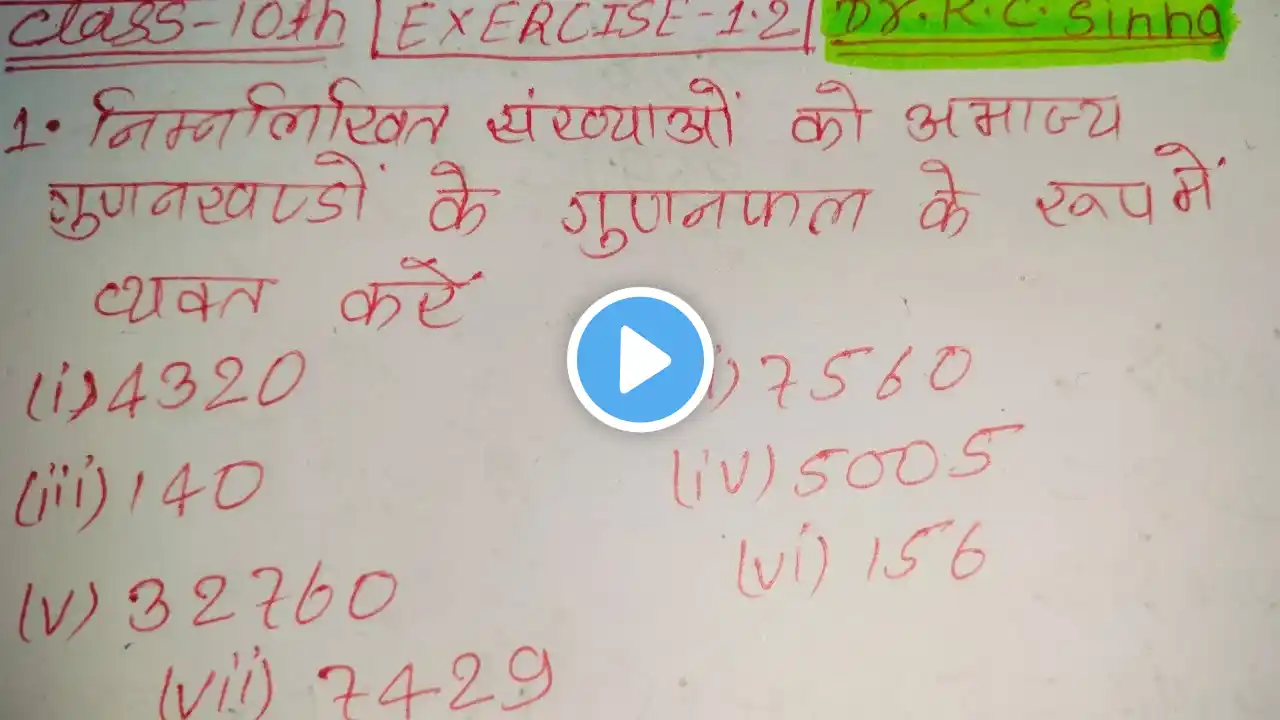 Class-10th EXERCISE-1.2 Dr. R. C. Sinha
1. निम्नलिखित संख्याओं को अभाज्य
गुणनखण्डों के गुणनफल के रूप में
व्यक्त करें
(i) 4320 i) 7560
(iii) 140 (iv) 5005
(v) 32760 (vi) 156
(vii) 7429